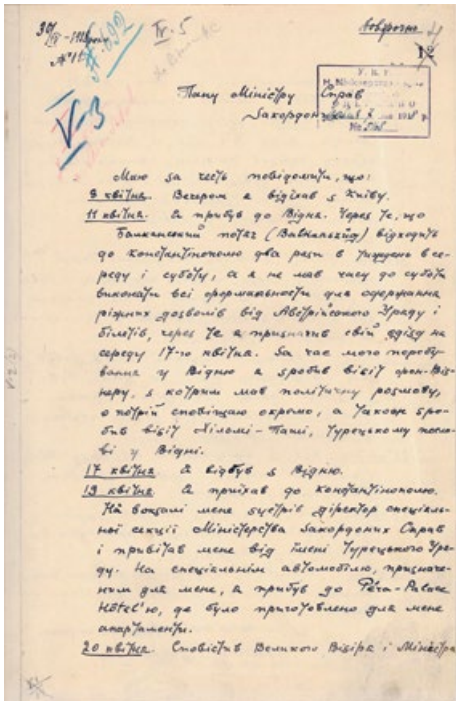 30/IV-1918 року
№ 11
№ 692
IV-5
V-3
Довірочно
12
Пану Міністру Справ
Закордонних
У. Н. Р.
Маю за честь повідомити, що:
8 квітня. Вечером я відїхав з Київу.
11 квітня. Я прибув до Відня. Через те, що
Балканський потяг (Balkanzug) відходить
до Константінополю два рази в тиждень в се-
реду і суботу, а я не мав часу до суботи
виконати всі формальности для одержання
ріжних дозволів від Австрійського Уряду і
білетів, через те я призначив свій відїзд на
середу 17-го квітня. За час мого перебу-
вання у Відню я зробив візіт фон-Віз-
неру, з котрим мав політичну розмову,
о котрій сповіщаю окремо, а також зро-
бив візіт Хільмі-Паші, Турецькому посло-
ві у Відні.
17 квітня. Я відбув з Відню.
19 квітня. Я приїхав до Константінополю.
На вокзалі мене зустрів діректор спеціаль-
ної секції Міністерства Закордоних Справ
і привітав мене від імені Турецького Уря-
ду. На спеціальнім автомобілю, призначе-
ним для мене, я прибув до Péra-Palace
Hôtel'ю, де було приготовлено для мене
апартаменти.
20 квітня. Сповістив Великого Візіра і Міністра